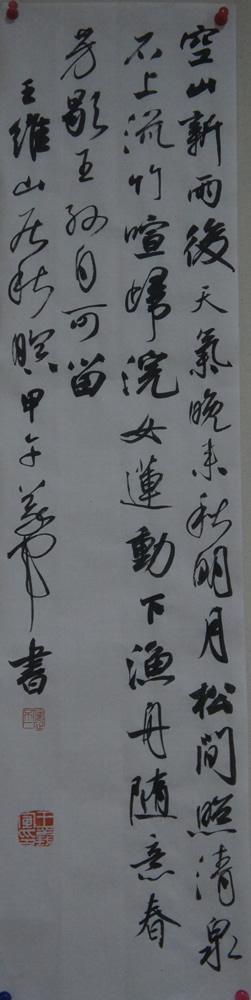 空山新雨後天氣晚來秋明月松間照清泉
石上流竹喧歸浣女蓮動下漁舟隨意春
芳歇王孫自可留
王維山居秋暝甲午義軍書